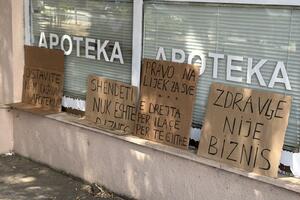 APOTEKA
APOTEKA
OSTAVITE
APOTEKU
SHENDETI
NUK ËSHTË
BIZNES
PRAVO NA
LIJEK ZA SVE
E DREJTA
PER ILAÇE
PER TE GJITHE
ZDRAVLJE
NIJE
BIZNIS